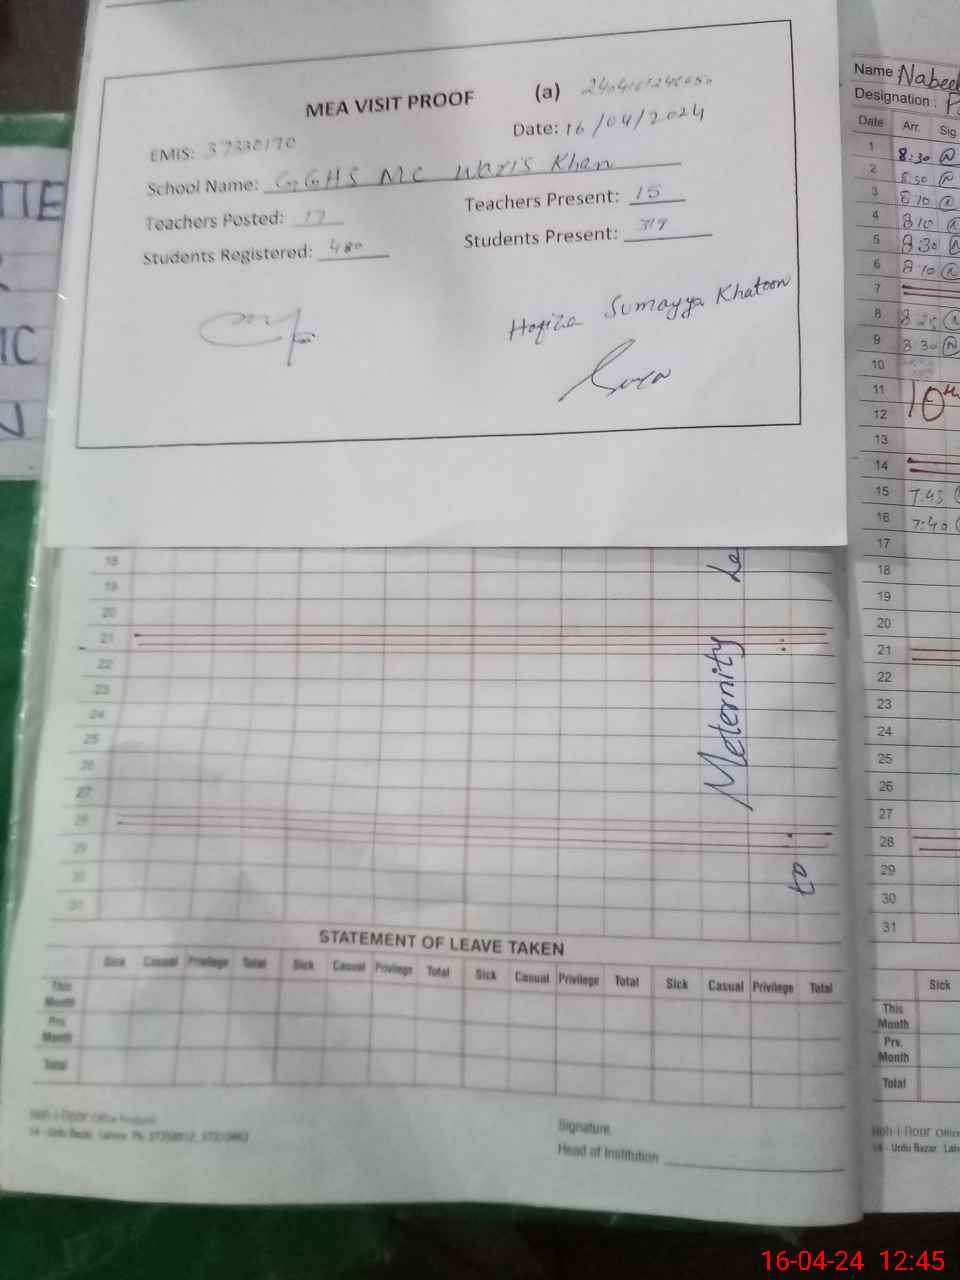 MEA VISIT PROOF (a)
Date: 16/04/2024
EMIS: 37330170
School Name: GGHS MC Waris Khan
Teachers Posted: 17 Teachers Present: 15
Students Registered: 480 Students Present:
Hafiza Sumayya Khatoon
TTE
MC
18
19
20
21
22
23
24
25
26
27
28
29
30
31
Meternity Le
to
STATEMENT OF LEAVE TAKEN
Sick Casual Privilege Total Sick Casual Privilege Total Sick Casual Privilege Total Sick Casual Privilege Total
This Month
Prv. Month
Total
Signature
Head of Institution
Name: Nabeel
Designation:
Date Arr. Sig
1 8:30
2 8:30
3 8:10
4 8:10
5 8:30
6 8:10
7
8 8:25
9 8:30
10
11 10th
12
13
14
15 7:45
16 7:40
17
18
19
20
21
22
23
24
25
26
27
28
29
30
31
Sick
This Month
Prv. Month
Total
14 - Urdu Bazar, Lah
16-04-24 12:45